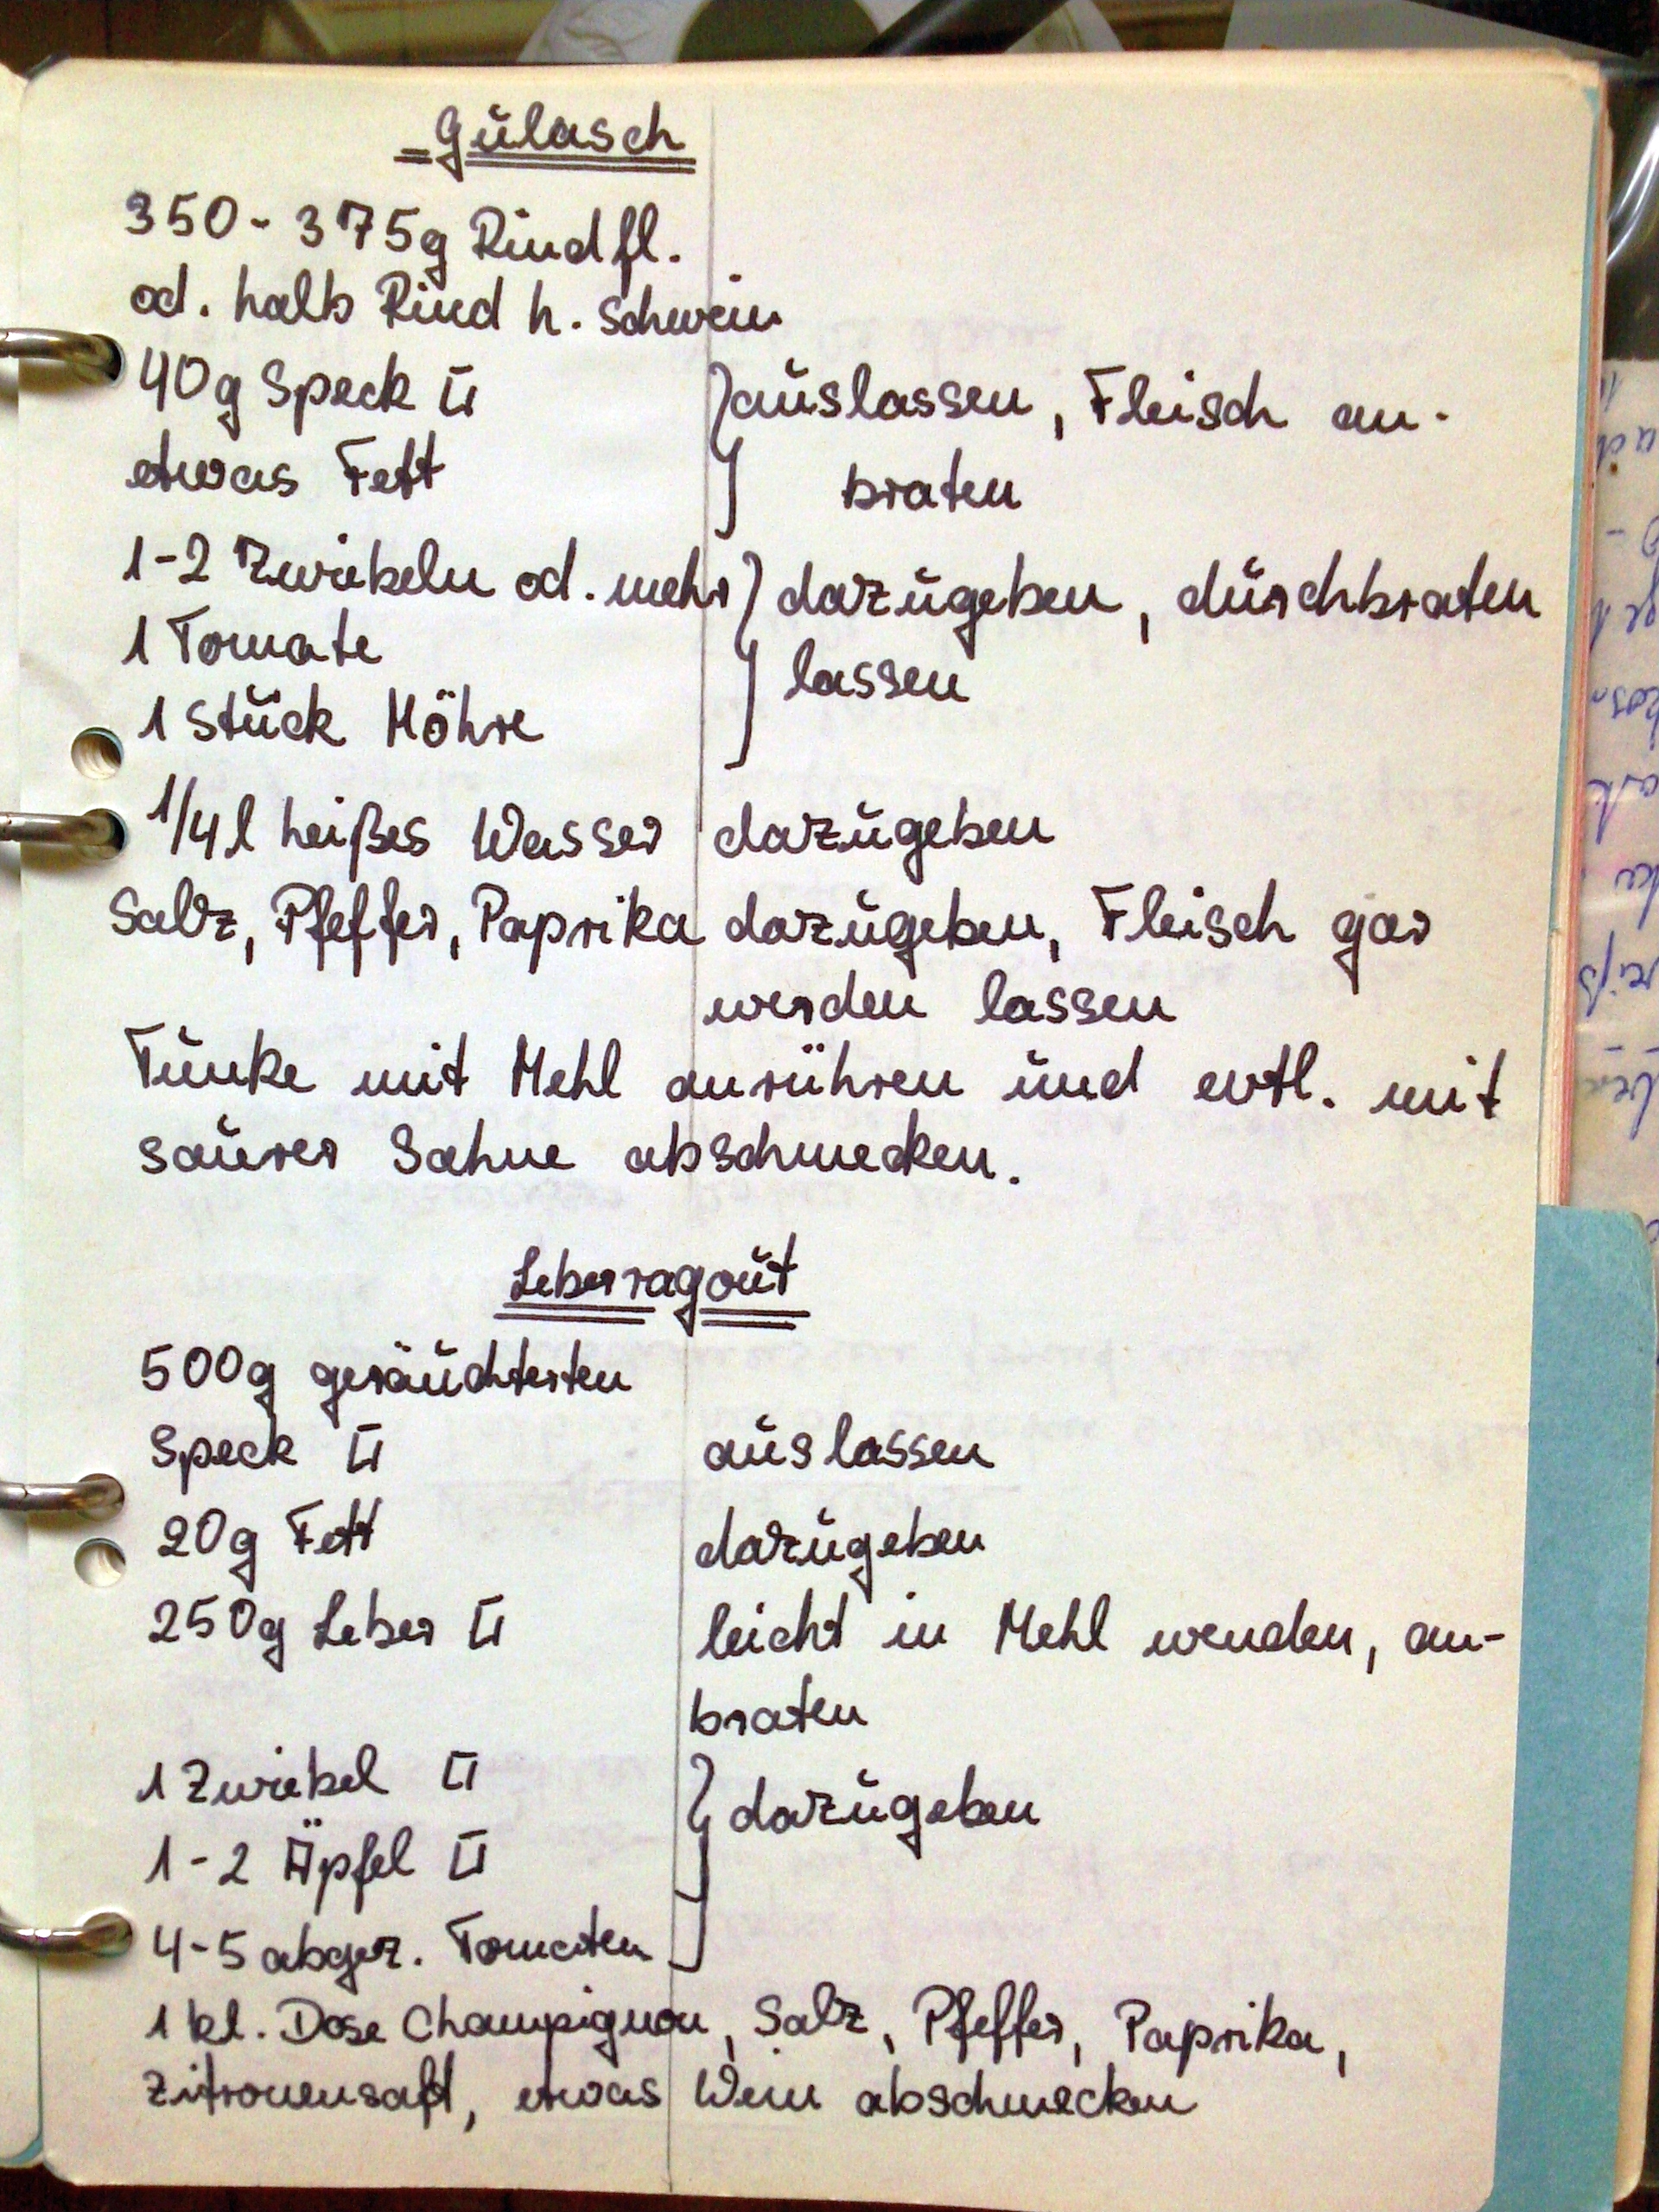 Gulasch
350 - 375g Rindfl.
od. halb Rind h. Schwein
40g Speck □ } auslassen, Fleisch an-
etwas Fett } braten
1-2 Zwiebeln od. mehr } dazugeben, durchbraten
1 Tomate } lassen
1 Stück Möhre
1/4 l heißes Wasser dazugeben
Salz, Pfeffer, Paprika dazugeben, Fleisch gar
werden lassen
Tunke mit Mehl anrühren und evtl. mit
saurer Sahne abschmecken.
Leberragout
500g geräucherten
Speck □ auslassen
20g Fett dazugeben
250g Leber □ leicht in Mehl wenden, an-
braten
1 Zwiebel □ } dazugeben
1-2 Äpfel □
4-5 abgez. Tomaten
1 kl. Dose Champignon, Salz, Pfeffer, Paprika,
Zitronensaft, etwas Wein abschmecken